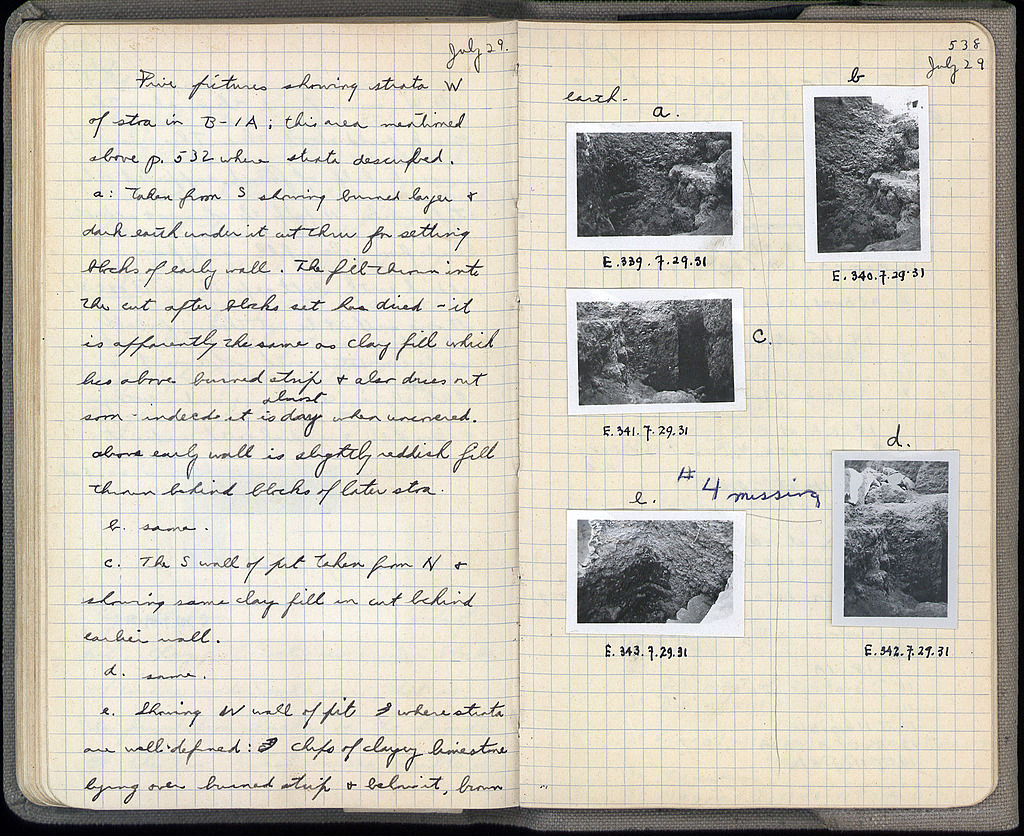 July 29.
Five pictures showing strata W
of stoa in B-1A; this area mentioned
above p. 532 where strata described.
a: Taken from S showing burned layer &
dark earth under it cut thru for setting
blocks of early wall. The fill thrown into
the cut after blocks set has dried - it
is apparently the same as clay fill which
lies above burned strip & also dries out
soon - indeed it is almost dry when uncovered.
above early wall is slightly reddish fill
thrown behind blocks of later stoa.
b. same.
c. The S wall of pit taken from N &
showing same clay fill in cut behind
earlier wall.
d. same.
e. Showing W wall of pit where strata
are well-defined: chips of clayey limestone
lying over burned strip & below it, brown
538
July 29
earth.
a.
b
E.339.7.29.31
E.340.7.29.31
c.
E.341.7.29.31
d.
#4 missing
e.
E.343.7.29.31
E.342.7.29.31